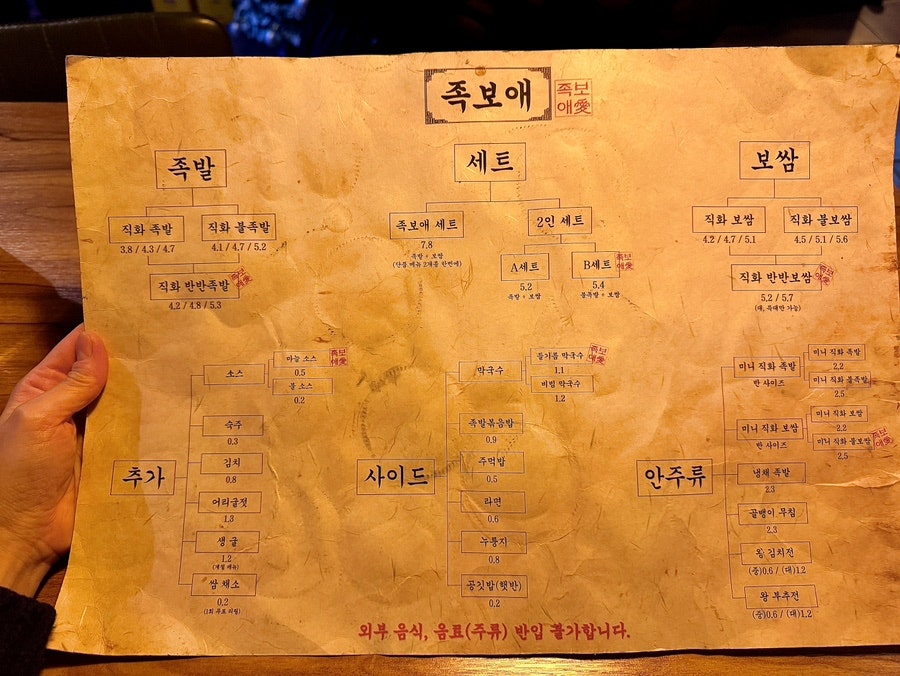 족보애
족보
애愛
족발
직화 족발
3.8 / 4.3 / 4.7
직화 불족발
4.1 / 4.7 / 5.2
직화 반반족발
족보
애愛
4.2 / 4.8 / 5.3
세트
족보애 세트
7.8
족발 + 보쌈
(단품 메뉴 2개를 한번에)
2인 세트
A세트
5.2
족발 + 보쌈
B세트
족보
애愛
5.4
불족발 + 보쌈
보쌈
직화 보쌈
4.2 / 4.7 / 5.1
직화 불보쌈
4.5 / 5.1 / 5.6
직화 반반보쌈
족보
애愛
5.2 / 5.7
(대, 특대만 가능)
추가
소스
마늘 소스
족보
애愛
0.5
불 소스
0.2
숙주
0.3
김치
0.8
어리굴젓
1.3
생 굴
1.2
(계절 메뉴)
쌈 채소
0.2
(1회 무료 리필)
사이드
막국수
들기름 막국수
족보
애愛
1.1
비빔 막국수
1.2
족발볶음밥
0.9
주먹밥
0.5
라면
0.6
누룽지
0.8
공깃밥(햇반)
0.2
안주류
미니 직화 족발
반 사이즈
미니 직화 족발
2.2
미니 직화 불족발
2.5
미니 직화 보쌈
반 사이즈
미니 직화 보쌈
2.2
미니 직화 불보쌈
족보
애愛
2.5
냉채 족발
2.3
골뱅이 무침
2.3
왕 김치전
(중)0.6 / (대)1.2
왕 부추전
(중)0.6 / (대)1.2
외부 음식, 음료(주류) 반입 불가합니다.